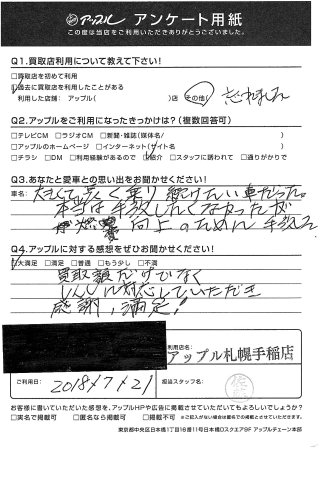 アップル アンケート用紙
この度は当店をご利用いただきありがとうございました。
Q1.買取店利用について教えて下さい!
□買取店を初めて利用
☑過去に買取店を利用したことがある
利用した店舗: アップル( )店 その他( 忘れました
Q2.アップルをご利用になったきっかけは?(複数回答可)
□テレビCM □ラジオCM □新聞・雑誌(媒体名/ )
□アップルのホームページ □インターネット(サイト名 )
□チラシ □DM □利用経験があるので ☑紹介 □スタッフに誘われて □通りがかりで
Q3.あなたと愛車との思い出をお聞かせください!
車名: 大きくて 長く乗り続けたい車だった。
本当は手放したくなかったが
燃費向上のために手放す
Q4.アップルに対する感想をぜひお聞かせください!
☑大満足 □満足 □普通 □もう少し □不満
買取額だけでなく
対応していただき
感謝、満足!
利用店名:
アップル札幌手稲店
ご利用日: 2018/7/21
担当スタッフ名:
お客様に書いていただいた感想を、アップルHPや広告に掲載させていただいてもよろしいでしょうか?
□実名で掲載可 □匿名なら掲載可 □掲載不可 ※ご記入がない場合は匿名での掲載とさせていただきます。
東京都中央区日本橋1丁目16番11号日本橋Dスクエア9F アップルチェーン本部